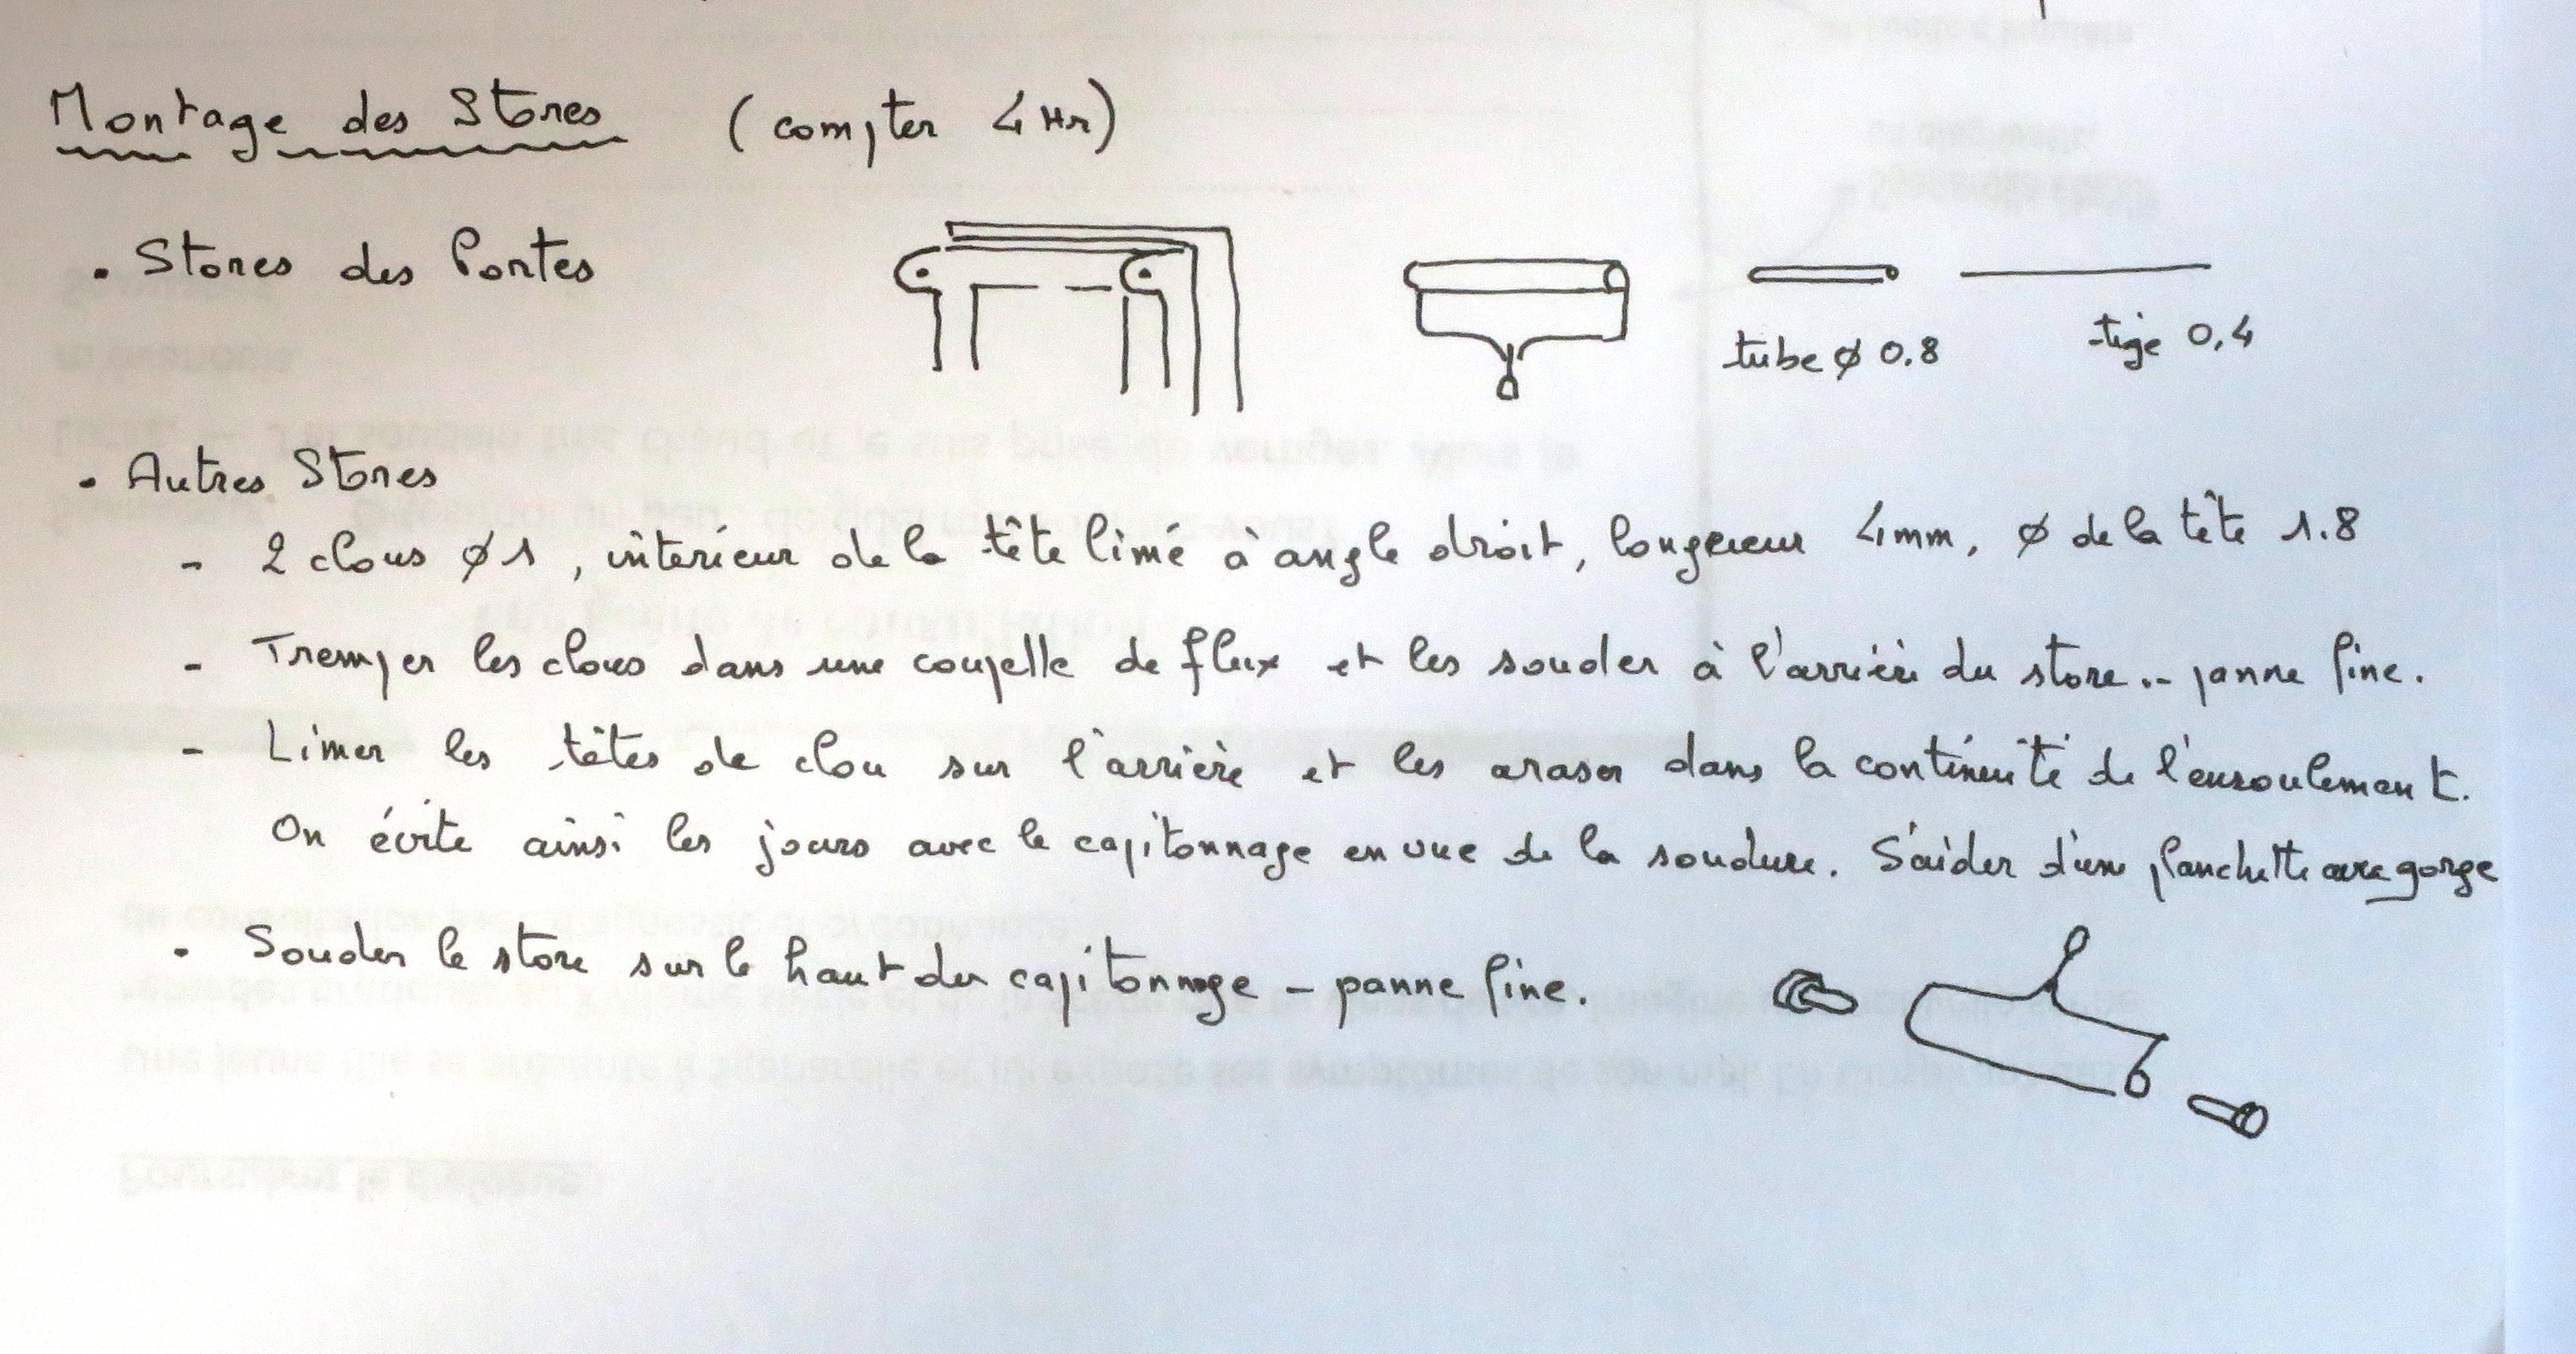 Montage des Stores (compter 4 Hr)
. Stores des Portes
tube ø 0.8
tige 0,4
. Autres Stores
- 2 clous ø 1, intérieur de la tête limé à angle droit, longueur 4mm, ø de la tête 1.8
- Tremper les clous dans une coupelle de flux et les souder à l'arrière du store .. panne fine.
- Limer les têtes de clou sur l'arrière et les araser dans la continuité de l'enroulement.
On évite ainsi les jours avec le capitonnage en vue de la soudure. S'aider d'une planchette avec gorge
. Souder le store sur le haut du capitonnage - panne fine.